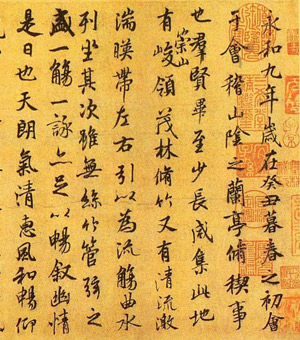 永和九年歲在癸丑暮春之初會
于會稽山陰之蘭亭脩禊事
也羣賢畢至少長咸集此地
有崇山峻領茂林脩竹又有清流激
湍暎帶左右引以為流觴曲水
列坐其次雖無絲竹管弦之
盛一觴一詠亦足以暢敘幽情
是日也天朗氣清惠風和暢仰